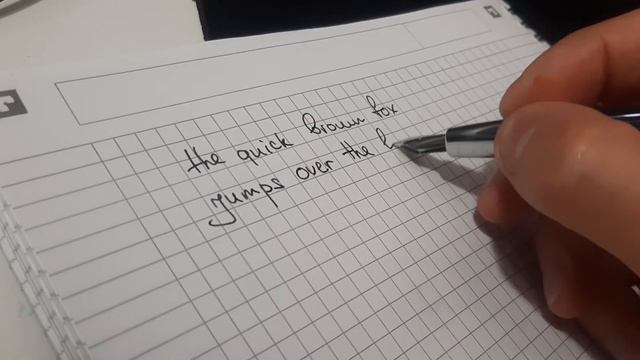 the quick brown fox
jumps over the l